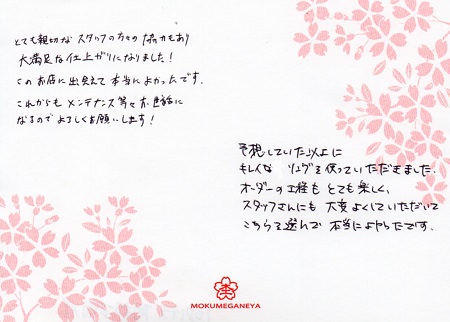 とても親切なスタッフの方々の協力もあり
大満足な仕上がりになりました！
このお店に出会えて本当によかったです。
これからもメンテナンス等々お世話に
なるのでよろしくお願いします！
予想していた以上に
リングを作っていただきました。
オーダーの工程もとても楽しく、
スタッフさんにも大変よくしていただいて
こちらを選んで本当によかったです。
MOKUMEGANEYA